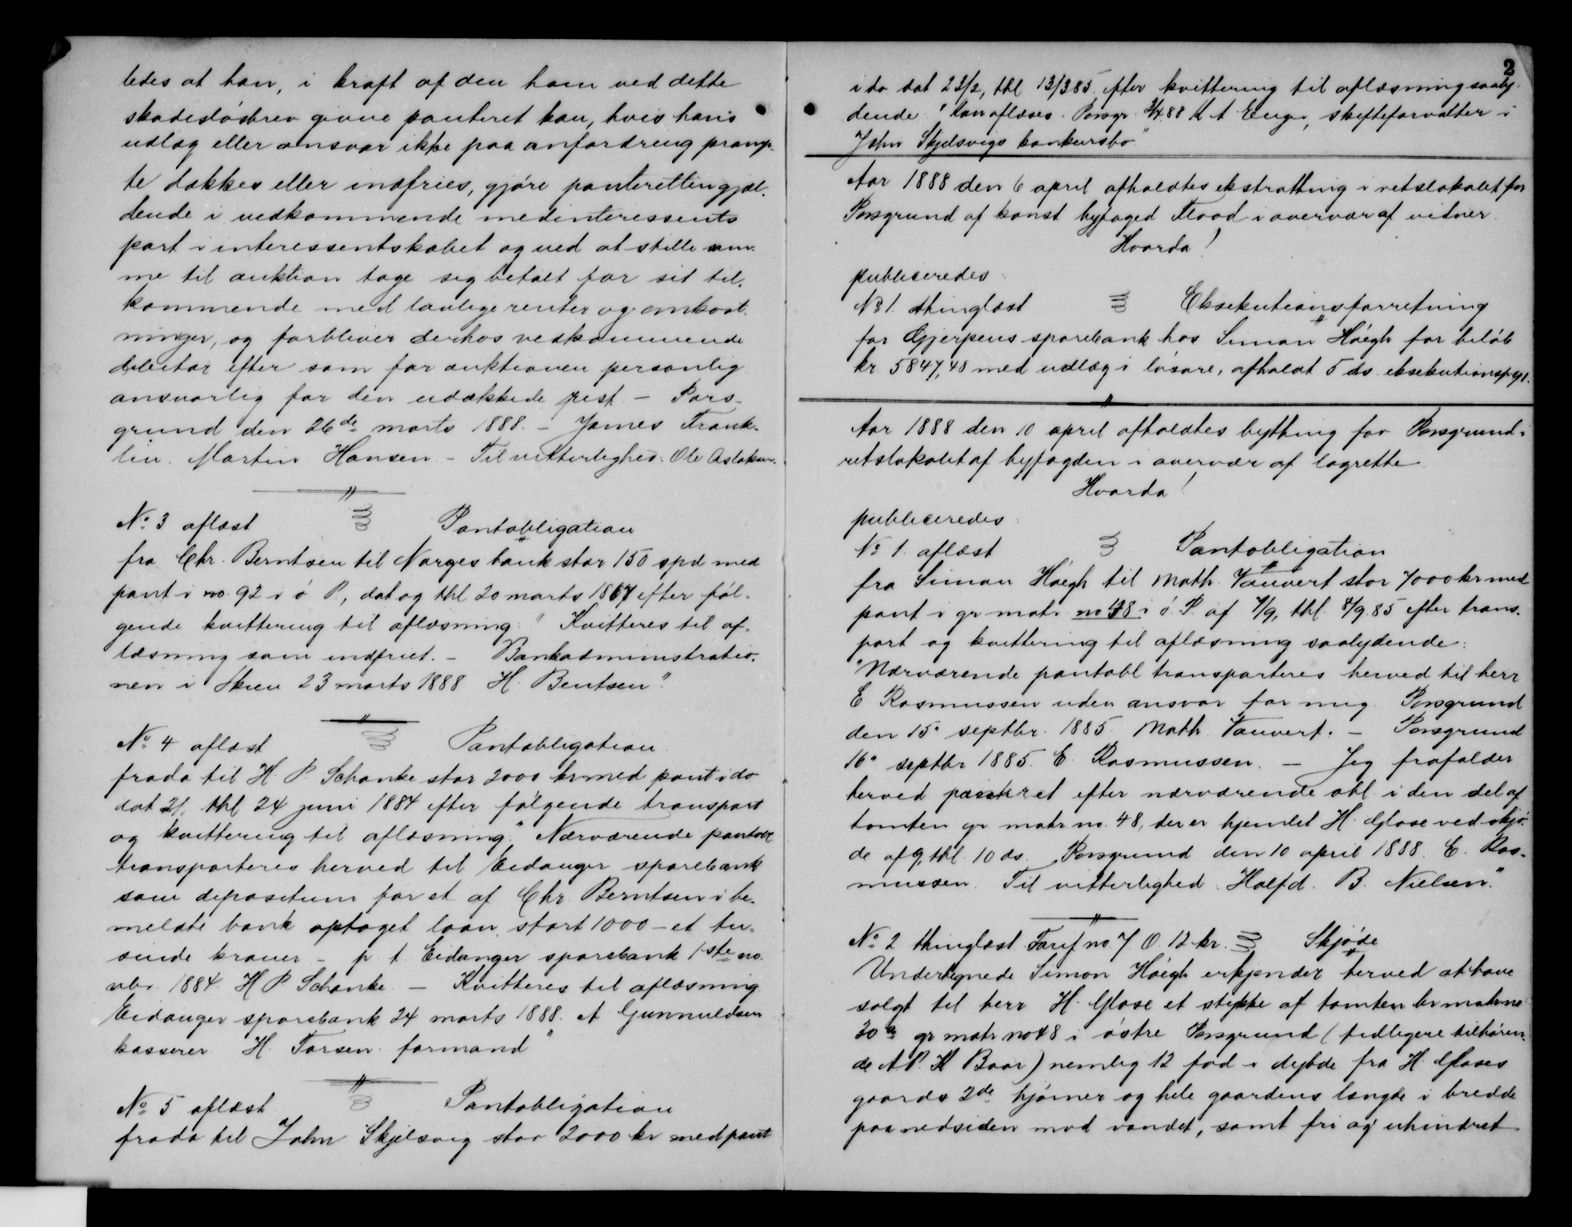 ledes at han, i kraft af den ham ved dette
skadesløsbrev givne panteret kan, hvis hans
udlæg eller ansvar ikke paa anfordring promp-
te dækkes eller indfries, gjøre panteretten gjæl-
dende i vedkommende medinteressents
part i interessentskabet og ved at stille sam-
me til auktion tage sig betalt for sit til-
kommende med lovlige renter og omkost-
ninger, og forbliver derhos vedkommende
debitor efter som før auktionen personlig
ansvarlig for den udækkede rest. – Pors-
grund den 26de marts 1888. – James Frank-
lin. Martin Hansen. – Til vitterlighed: Ole Aslaksen.
No 3 aflæst Pantobligation
fra Chr. Berntsen til Norges bank stor 150 spd med
pant i no. 92 i ø P., dat og thl 20 marts 1867 efter føl-
gende kvittering til aflæsning: " Kvitteres til af-
læsning som indfriet. – Bankadministratio-
nen i Skien 23 marts 1888 H. Bentsen".
No 4 aflæst Pantobligation
fra do til H. P. Schanke stor 2000 kr med pant i do
dat 21, thl 24 juni 1884 efter følgende transport
og kvittering til aflæsning: "Nærværende pantobl
transporteres herved til Eidanger sparebank
som depositum for et af Chr. Berntsen i be-
meldte bank optaget laan stort 1000 – et tu-
sinde kroner – p. t. Eidanger sparebank 1ste no-
vbr. 1884. H P Schanke. – Kvitteres til aflæsning
Eidanger sparebank 24 marts 1888. A Gunnuldsen
kasserer H. Torsen formand"
No 5 aflæst Pantobligation
fra do til John Skjelsvig stor 2000 kr med pant
2
i do dat 23/2, thl 13/3 85 efter kvittering til aflæsning saaly-
dende: "Kan aflæses. Porsgr. 3/4 88 K A Enge, skifteforvalter i
John Skjelsvigs konkursbo"
Aar 1888 den 6 april afholdtes ekstratting i retslokalet for
Porsgrund af konst byfoged Flood i overvær af vidner.
Hvorda!
publiceredes:
No 1. thinglæst Eksekutionsforretning
for Gjerpens sparebank hos Simon Høegh for beløb
kr 5847,48 med udlæg i løsøre, afholdt 5 ds. eksekutionspgl.
Aar 1888 den 10 april afholdtes bything for Porsgrund i
retslokalet af byfogden i overvær af lagrette.
Hvorda!
publiceredes:
No 1. aflæst Pantobligation
fra Simon Høegh til Math. Vauvert stor 7000 kr med
pant i gr matr no 48 i ø. P. af 7/9, thl 8/9 85 efter trans-
port og kvittering til aflæsning saalydende:
"Nærværende pantobl transporteres herved til herr
E Rasmussen uden ansvar for mig. Porsgrund
den 15de septbr. 1885. Math. Vauvert. – Porsgrund
16de septbr 1885. E. Rasmussen. – Jeg frafalder
herved panteret efter nærværende obl. i den del af
tomten gr matr no. 48, der er hjemlet H. Glase ved skjø-
de af 9, thl. 10 ds. Porsgrund den 10 april 1888. E. Ras-
mussen. Til vitterlighed. Halfd. B. Nielsen."
No 2 thinglæst Tarif no. 7 O. 12 kr. Skjøde
Undertegnede Simon Høegh erkjender herved at have
solgt til herr H. Glase et stykke af tomten br matr no
30a gr matr no 48 i østre Porsgrund (tidligere tilhøren-
de A. P. K Baar) nemlig 12 fod i dybde fra H. Glases
gaards 2de hjørner og hele gaardens længde i bredde
paa nedsiden mod vandet, samt fri og uhindret